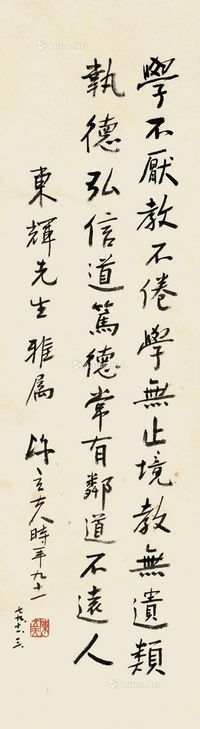 學不厭教不倦學無止境教無遺類
執德弘信道篤德常有鄰道不遠人
東輝先生雅屬
陳立夫時年九十一